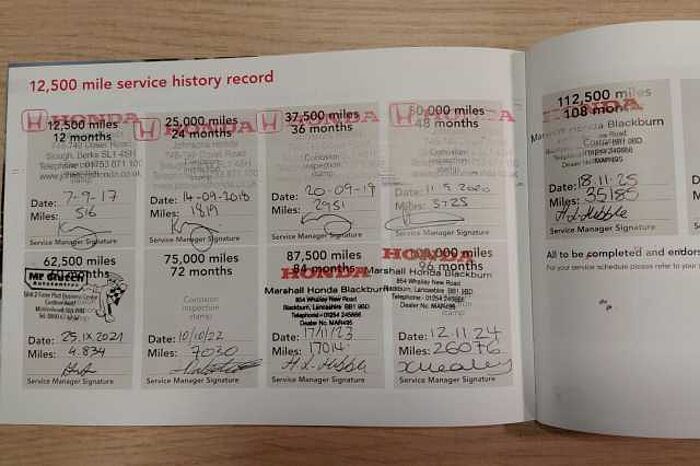 12,500 mile service history record
HONDA
12,500 miles
12 months
Date: 7-9-17
Miles: 516
Service Manager Signature
HONDA
25,000 miles
24 months
Corrosion
inspection
stamp
Date: 14-09-2018
Miles: 1819
Service Manager Signature
HONDA
37,500 miles
36 months
Corrosion
inspection
stamp
Date: 20-09-19
Miles: 2951
Service Manager Signature
HONDA
50,000 miles
48 months
Date: 11.5.2020
Miles: 3725
Service Manager Signature
62,500 miles
months
Mr Clutch
Autocentres
Date: 25.1X.2021
Miles: 4.834
Service Manager Signature
75,000 miles
72 months
Corrosion
inspection
stamp
Date: 10/10/22
Miles: 7030
Service Manager Signature
87,500 miles
84 months
HONDA
Marshall Honda Blackburn
854 Whalley New Road
Blackburn, Lancashire BB1 9BD
Telephone - 01254 246566
Dealer No. MAR495
Date: 17/11/23
Miles: 17014
Service Manager Signature
HONDA
100,000 miles
96 months
Marshall Honda Blackburn
854 Whalley New Road
Blackburn, Lancashire BB1 9BD
Date: 12.11.24
Miles: 26076
Service Manager Signature
112,500 miles
108 months
HONDA
Marshall Honda Blackburn
Date: 18.11.25
Miles: 35185
Service Manager Signature
All to be completed and endors
For your service schedule please refer to your